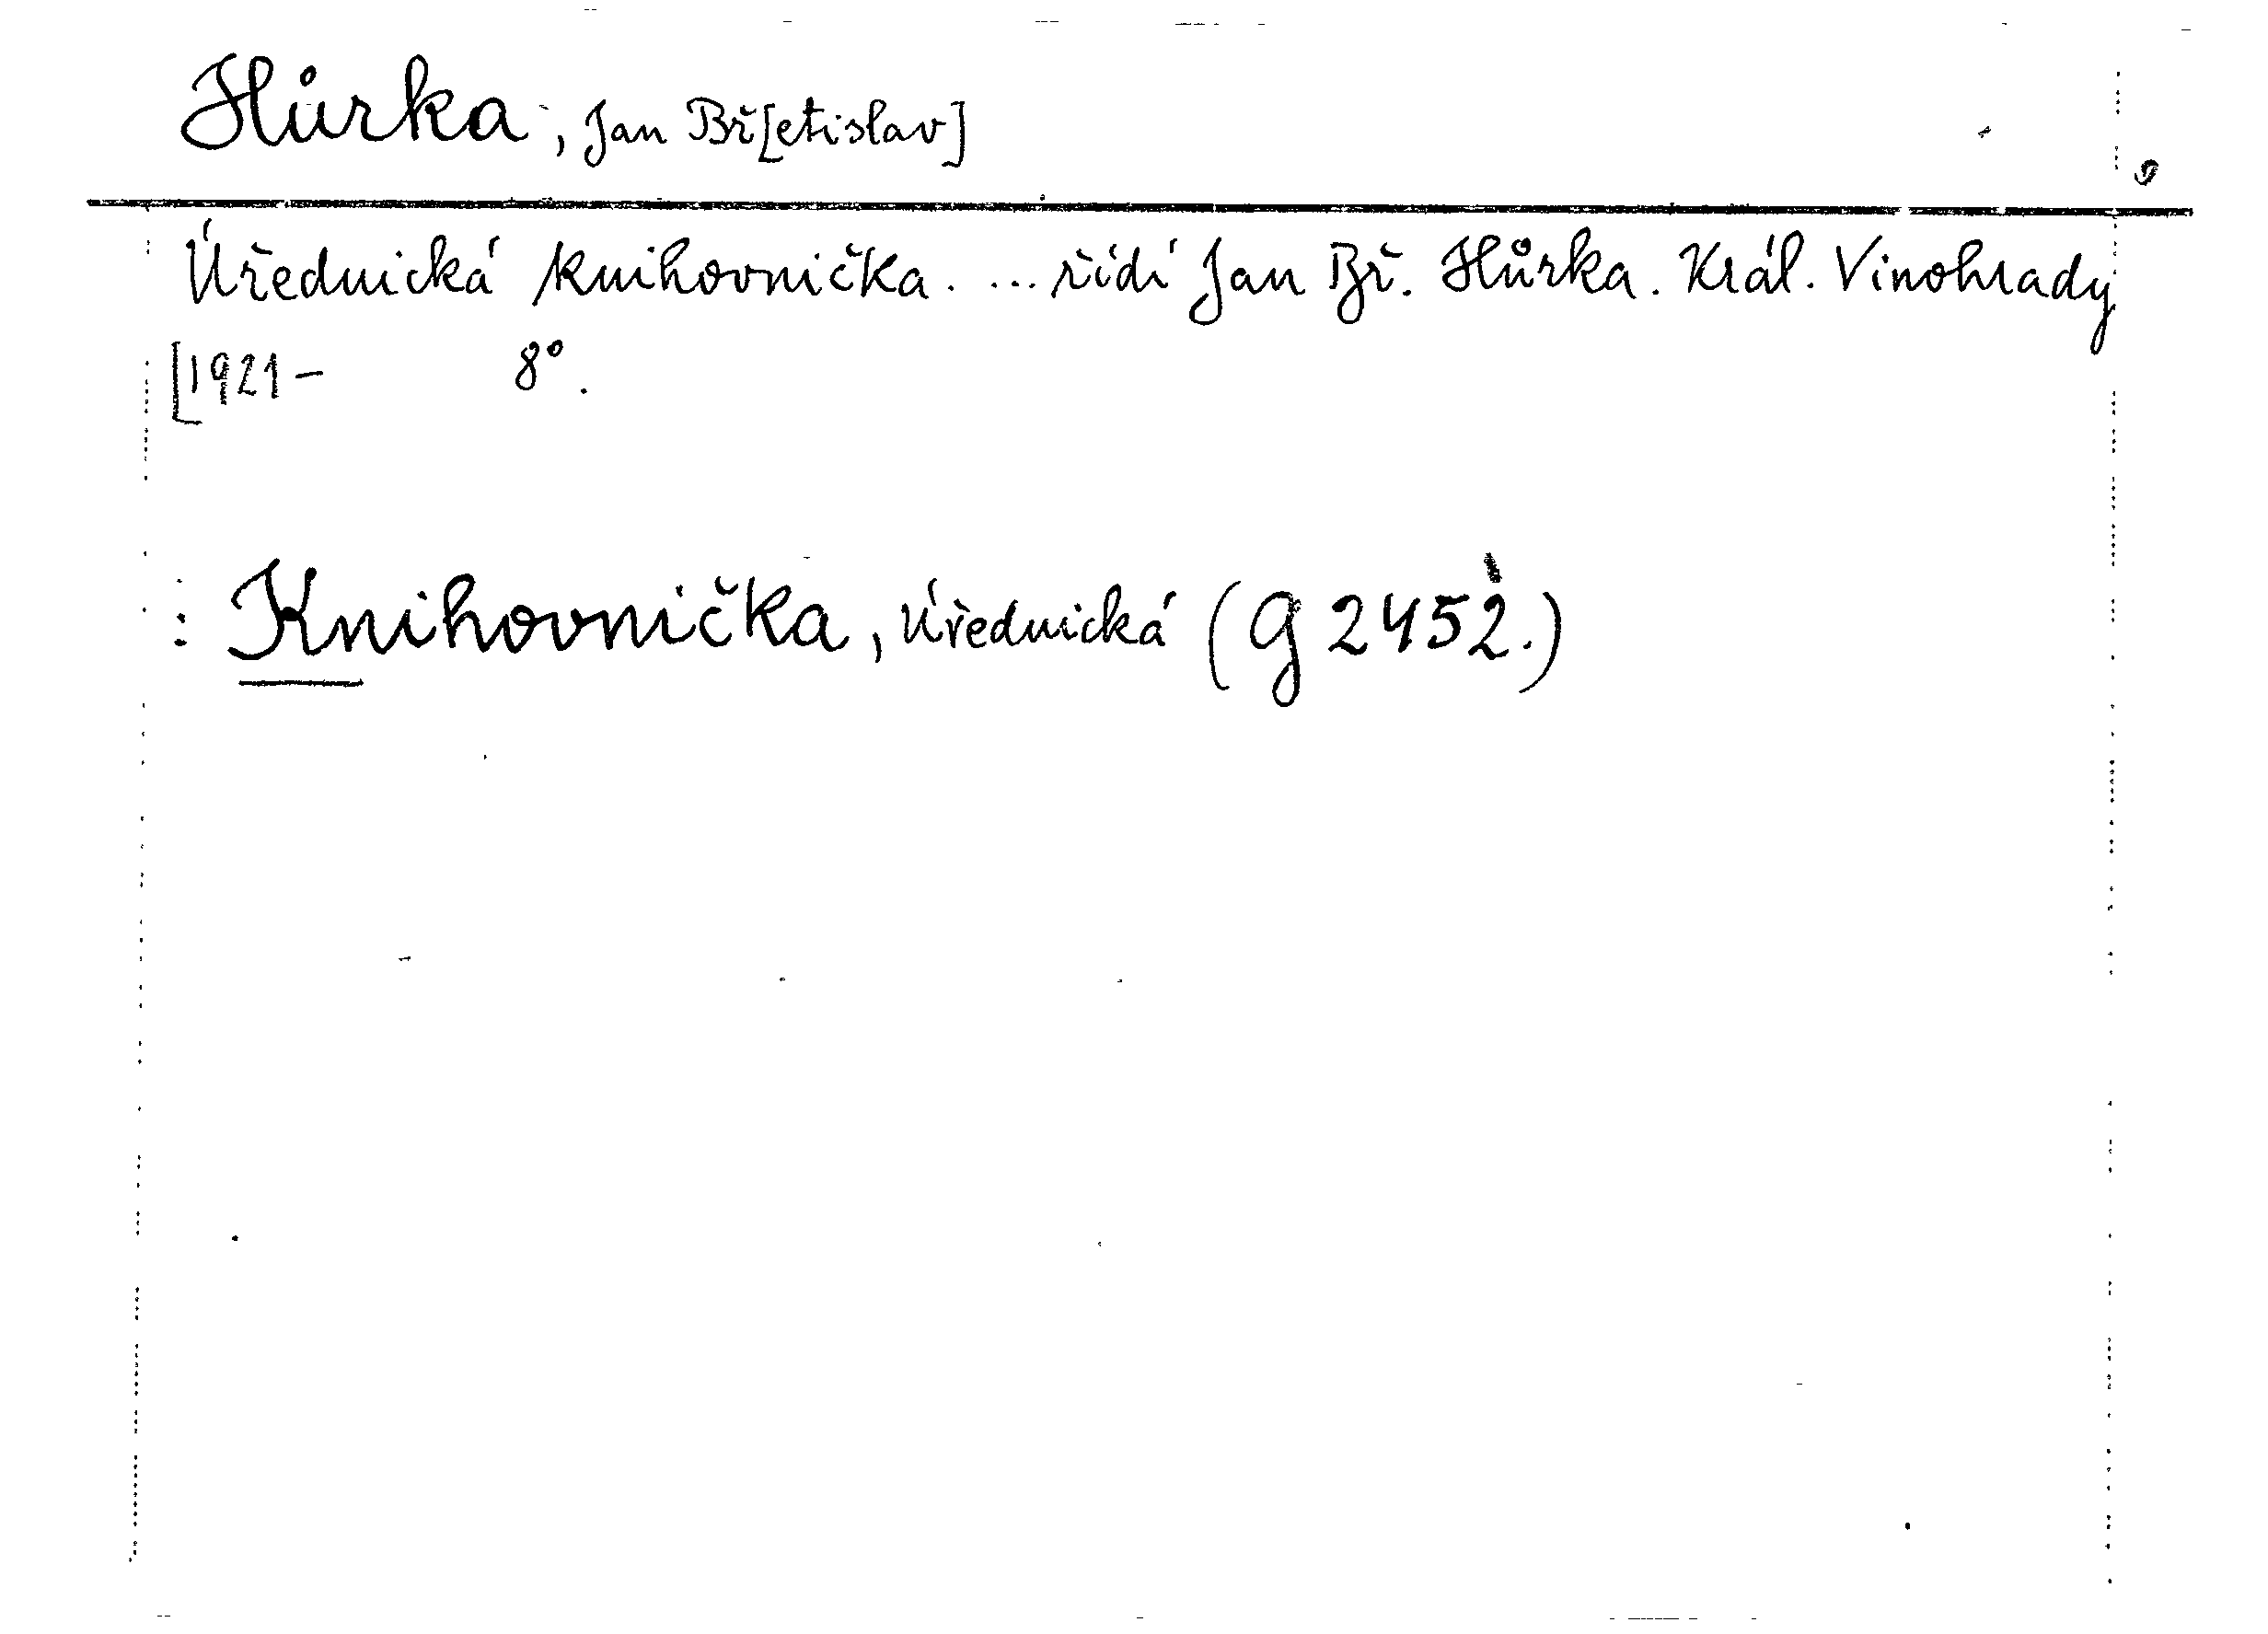 Hůrka, Jan Bř[etislav]
Úřednická knihovnička. ... řídí Jan Bř. Hůrka. Král. Vinohrady
[1921- 8°.
: Knihovnička, Úřednická (G 2452.)